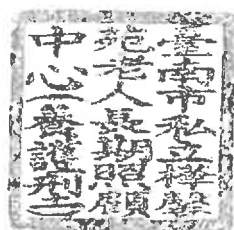 臺南市私立
苑老人長期照顧
中心（養護型）